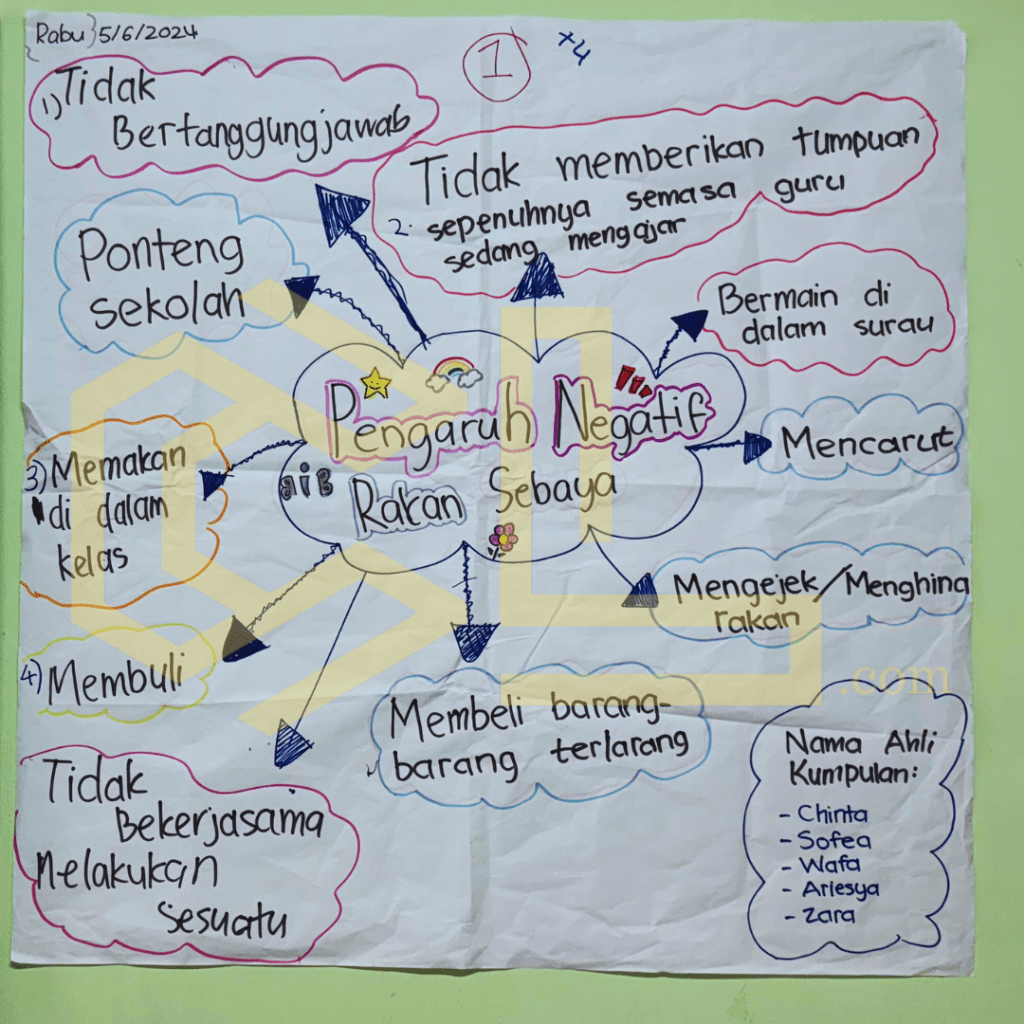 {Rabu} 5/6/2024
1
+4
1) Tidak
Bertanggungjawab
Tidak memberikan tumpuan
2. sepenuhnya semasa guru
sedang mengajar
Ponteng
sekolah
Bermain di
dalam surau
Pengaruh Negatif
Rakan Sebaya
Mencarut
3) Memakan
di dalam
kelas
Mengejek/Menghina
rakan
4) Membuli
Membeli barang-
barang terlarang
Tidak
Bekerjasama
Melakukan
Sesuatu
.com
Nama Ahli
Kumpulan:
- Chinta
- Sofea
- Wafa
- Ariesya
- Zara